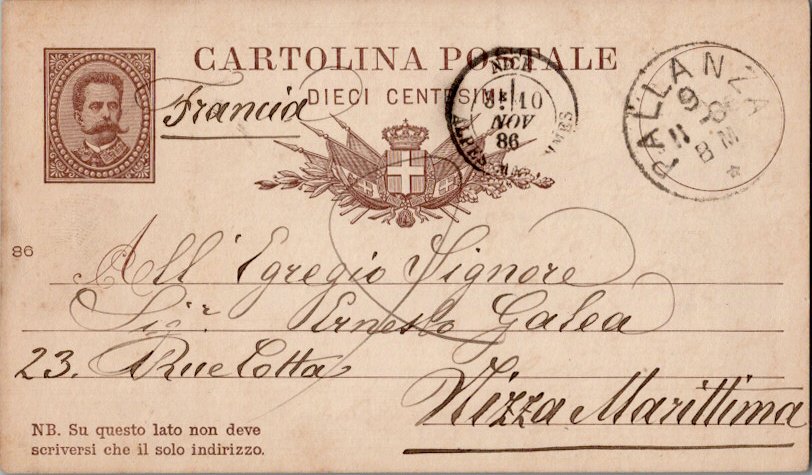 CARTOLINA POSTALE
Francia
DIECI CENTESIMI
NICE
10
NOV
86
ALPES MMES
PALLANZA
9
11
8 M
86
All' Egregio Signore
Sigr. Ernesto Galea
23. Rue Cotta
Nizza Marittima
NB. Su questo lato non deve
scriversi che il solo indirizzo.